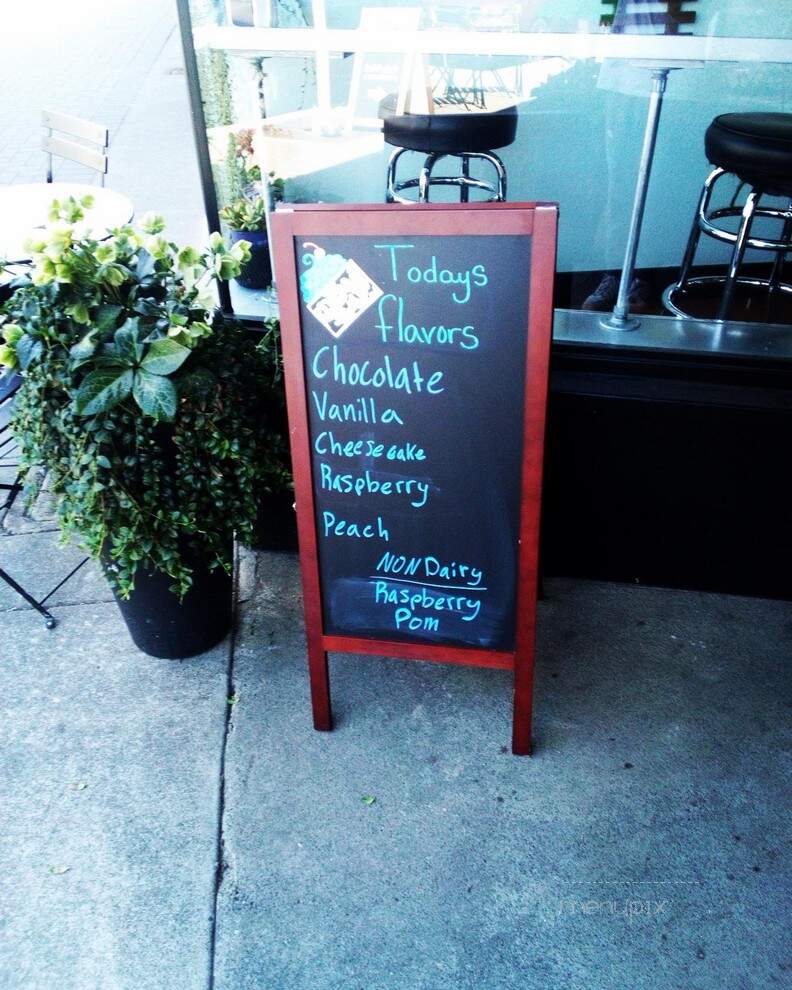 Todays
flavors
Chocolate
Vanilla
Cheesecake
Raspberry
Peach
NON Dairy
Raspberry
Pom
menupix